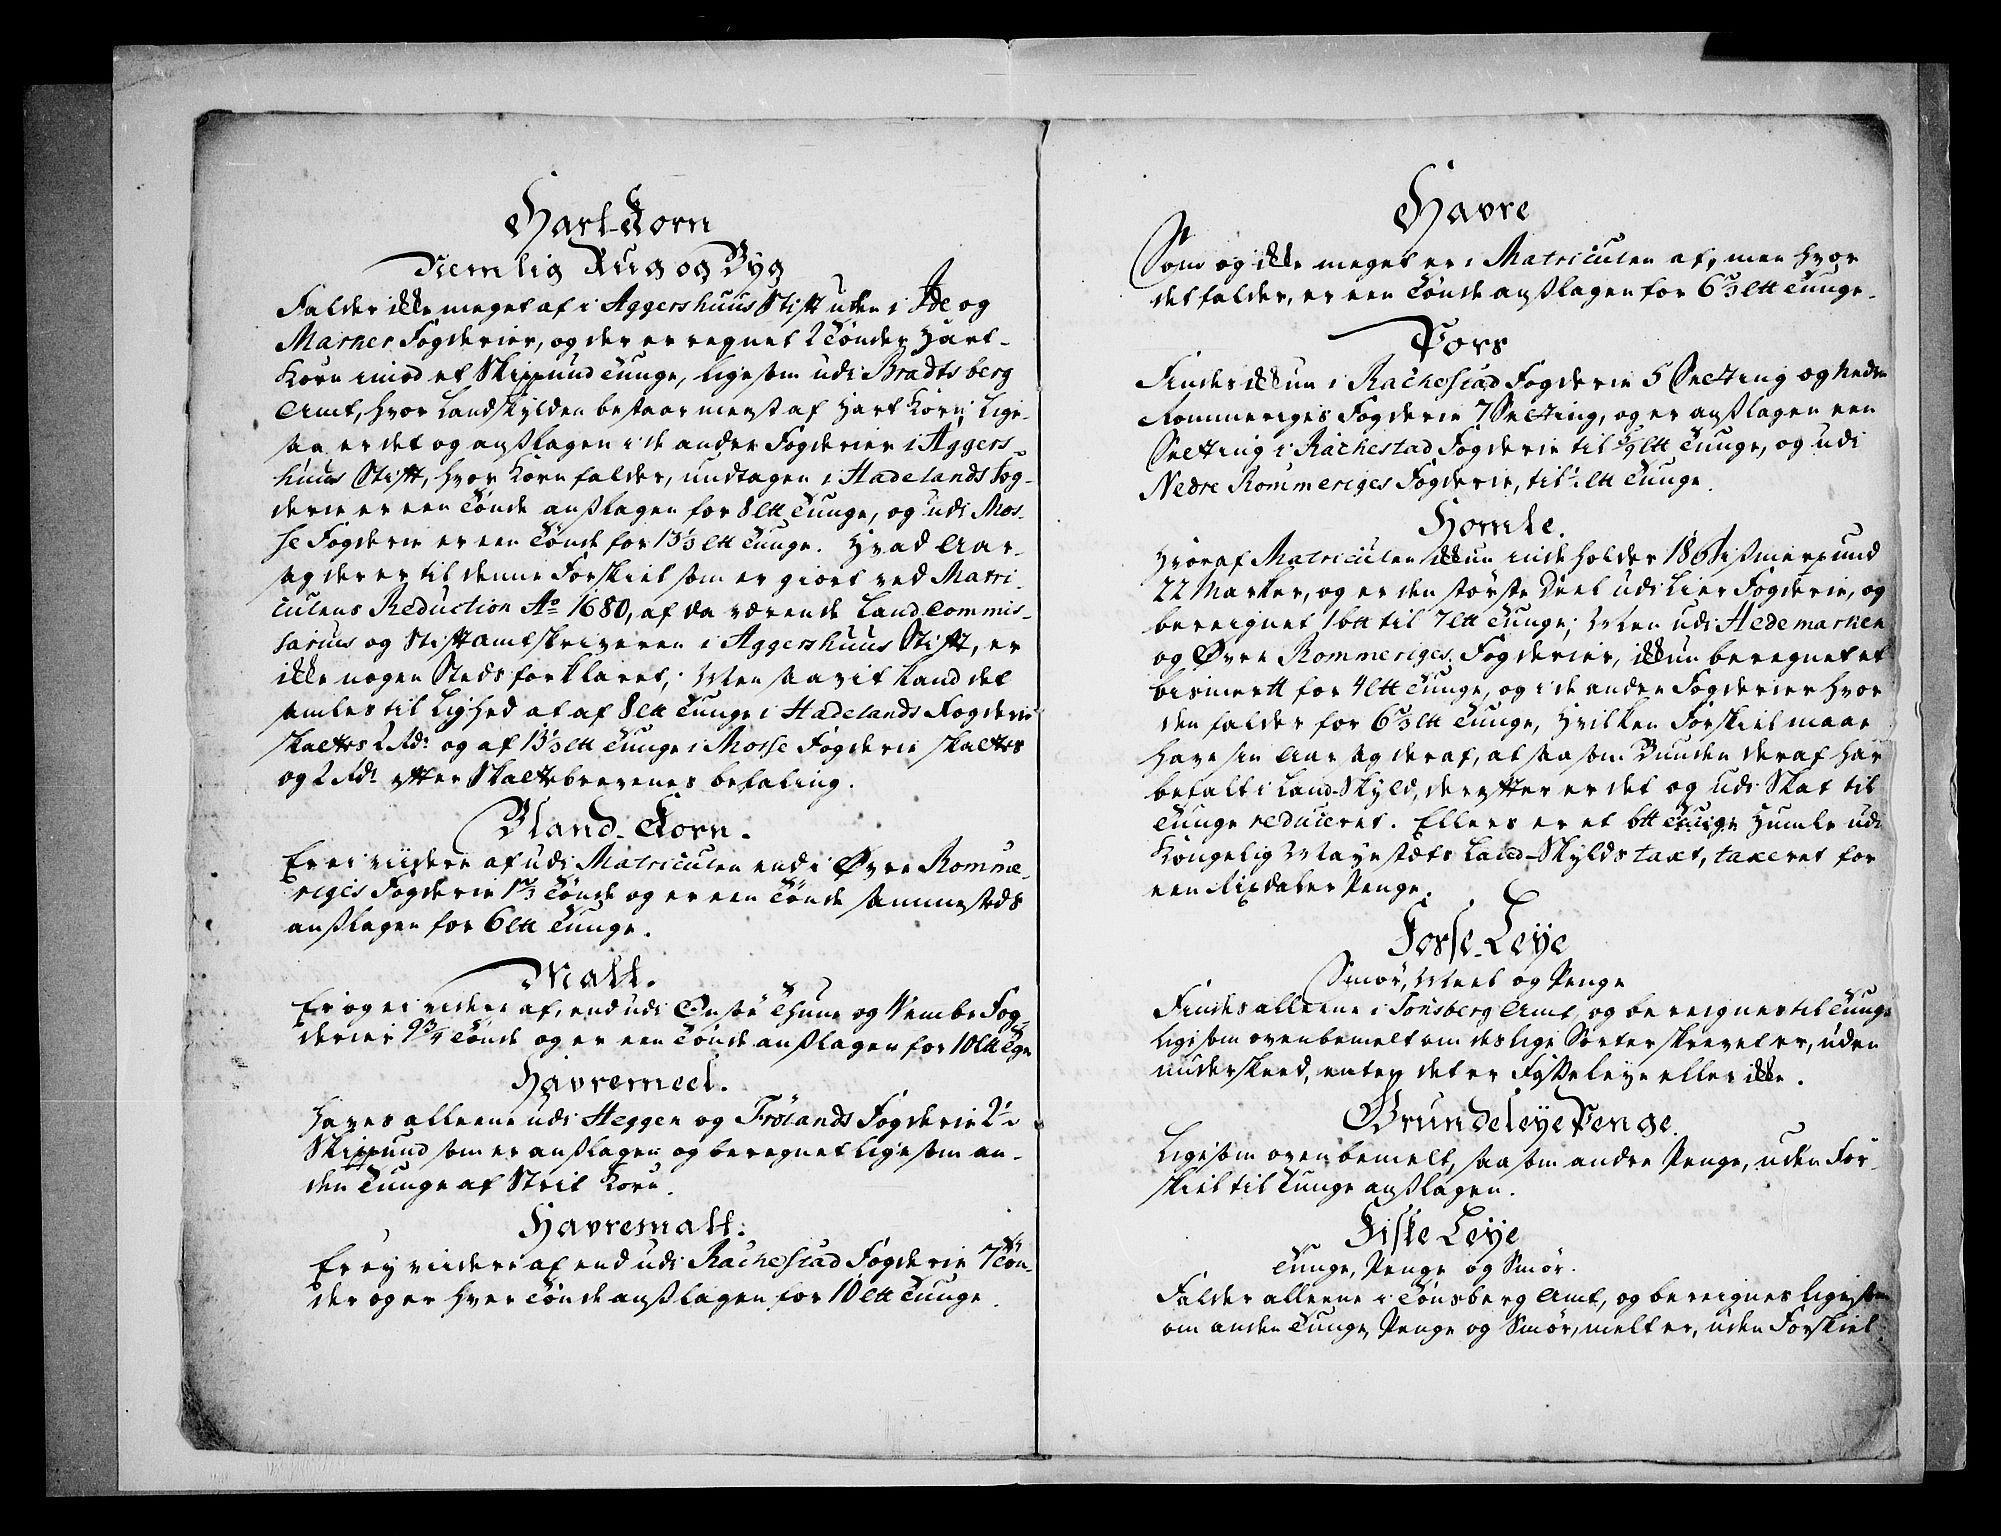 Hart-Korn
Nemlig Rug og Byg
Falder ikke meget af i Aggershuus Stift uden i Ide og
Marker Fogderier, og der er regnet 2 Tønder Hart-
Korn imod et Skippund Tunge, lige som udi Bradtsberg
Amt, hvor Landskylden bestaar meest af Hart Korn; Lige-
saa er det og anslagen i de andre Fogderier i Aggers
huus Stift, hvor Korn falder, undtagen i Hadelands Fog-
derie er een Tønde anslagen for 8 Ltt Tunge, og udi Mos-
se Fogderie er een Tønde for 13⅓ Ltt Tunge. Hvad Aar-
sag der er til denne Forskiel som er giort ved Matri-
culens Reduction Ao 1680, af da værende Land Commis-
sarius og Stiftamtskriveren i Aggershuus Stift, er
ikke nogen Steds forklaret; Men saavit kand det
samles til Lighed at af 8 Ltt Tunge i Hadelands Fogderie
skattes 2 Rdr og af 13⅓ Ltt Tunge i Mosse Fogderie skattes
og 2 Rdr efter Skattebrevenes befaling.
Bland-Korn.
Er ei viidere af udi Matriculen end i Øvre Romme-
riges Fogderie 1⅔ Tønde og er een Tønde sammesteds
anslagen for 6 Ltt Tunge.
Malt.
Er og ei videre af, end udi Onsøe Thune og Vembe Fog-
derier 9¾ Tønde og er een Tønde anslagen for 10 Ltt Tge
Havremeel.
Haves alleene udi Heggen og Frølands Fogderie 2½
Skippund som er anslagen og beregnet lige som an-
den Tunge af Strit Korn.
Havremalt.
Er ey viidere af end udi Rachestad Fogderie 7 Tøn-
der og er hver Tønde anslagen for 10 Ltt Tunge.
Havre
Som og ikke meget er i Matriculen af, men hvor
det falder, er een Tønde anslagen for 6⅔ Ltt Tunge.
Pors
Findes ikkun i Rachestad Fogderie 5 Setting og Nedre
Rommeriges Fogderie 7 Setting, og er anslagen een
Setting i Rachestad Fogderie til ⅔ Ltt Tunge, og udi
Nedre Rommeriges Fogderie, til 1 Ltt Tunge.
Homle.
Hvoraf Matriculen ikkun indeholder 18 Bismerpund
22 Marker, og er den største Deel udi Lier Fogderie, og
bereignet 1 btt til 7 Ltt Tunge; Men udi Hedemarken
og Øvre Rommeriges Fogderier, ikkun beregnet et
bismertt for 4 Ltt Tunge, og i de andre Fogderier hvor
den falder for 6⅔ Ltt Tunge, hvilken Forskiel maae
have sin Aarsag deraf, at saa som Bunden deraf har
betalt i Land-Skyld, derefter er det og udi Skat til
Tunge reduceret. Ellers er et btt Humle udi
Kongelig Mayestæts Land-Skylds taxt, taxeret for
een Rixdaler Penge.
Fosse-Leye
Smør, Meel og Penge
Findes alleene i Tønsberg Amt, og bereignes til Tunge
ligesom ovenbemelt om deslige Sorter skrevet er, uden
underskeed, enten det er Fosseleye eller ikke.
Grundeleye Penge.
Ligesom ovenbemelt, saa som andre Penge, uden For-
skiel til Tunge anslagen.
Fiske Leye
Tunge, Penge og Smør.
Falder alleene i Tønsberg Amt, og bereignes ligesom
om anden Tunge, Penge og Smør, melt er, uden Forskiel.